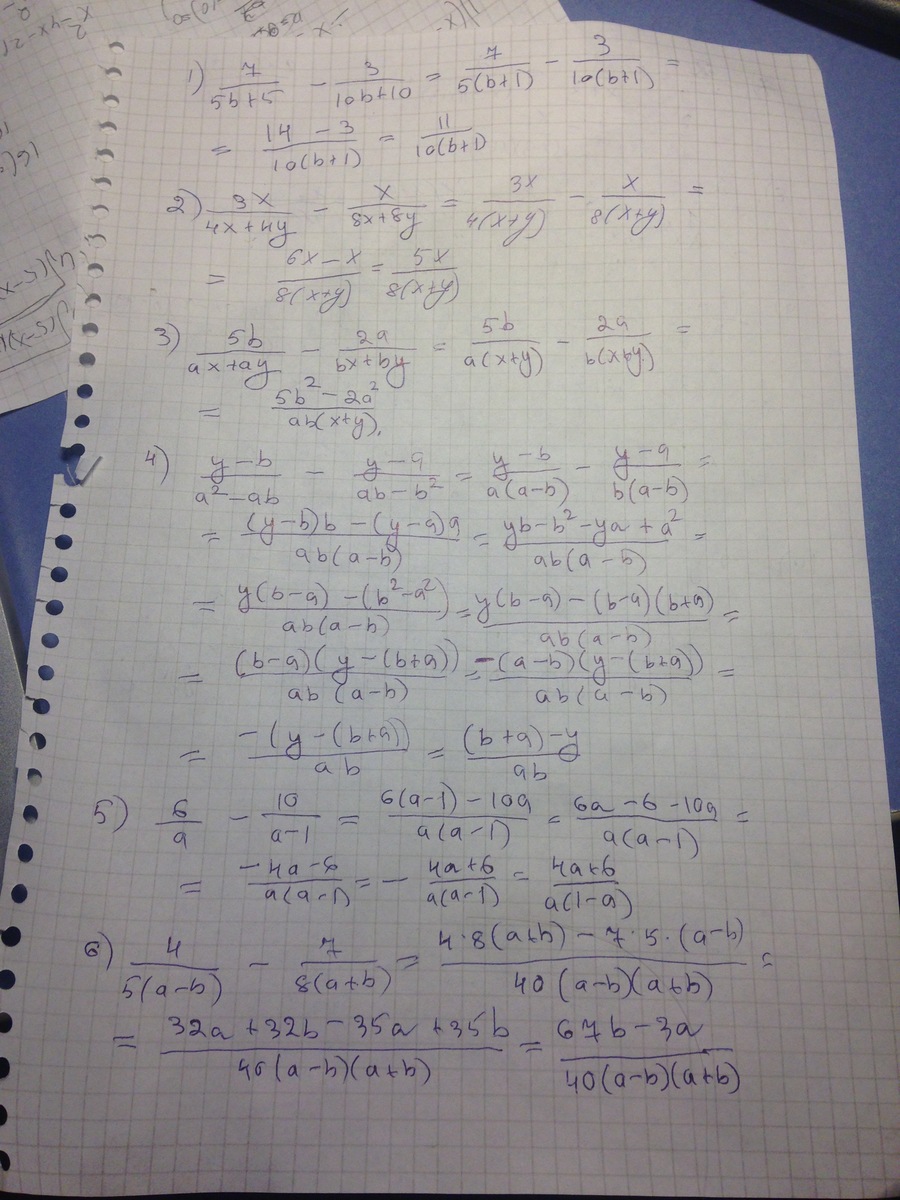 1) 7/(5b+5) - 3/(10b+10) = 7/(5(b+1)) - 3/(10(b+1)) =
= (14 - 3)/(10(b+1)) = 11/(10(b+1)
2) 3x/(4x+4y) - x/(8x+8y) = 3x/(4(x+y)) - x/(8(x+y)) =
= (6x-x)/(8(x+y)) = 5x/(8(x+y))
3) 5b/(ax+ay) - 2a/(bx+by) = 5b/(a(x+y)) - 2a/(b(x+y)) =
= (5b²-2a²)/(ab(x+y)).
4) (y-b)/(a²-ab) - (y-a)/(ab-b²) = (y-b)/(a(a-b)) - (y-a)/(b(a-b)) =
= ((y-b)b-(y-a)a)/(ab(a-b)) = (yb-b²-ya+a²)/(ab(a-b)) =
= (y(b-a)-(b²-a²))/(ab(a-b)) = (y(b-a)-(b-a)(b+a))/(ab(a-b)) =
= ((b-a)(y-(b+a)))/(ab(a-b)) = (-(a-b)(y-(b+a)))/(ab(a-b)) =
= (-(y-(b+a)))/(ab) = ((b+a)-y)/(ab)
5) 6/a - 10/(a-1) = (6(a-1)-10a)/(a(a-1)) = (6a-6-10a)/(a(a-1)) =
= (-4a-6)/(a(a-1)) = - (4a+6)/(a(a-1)) = (4a+6)/(a(1-a))
6) 4/(5(a-b)) - 7/(8(a+b)) = (4·8(a+b)-7·5·(a-b))/(40(a-b)(a+b)) =
= (32a+32b-35a+35b)/(40(a-b)(a+b)) = (67b-3a)/(40(a-b)(a+b))